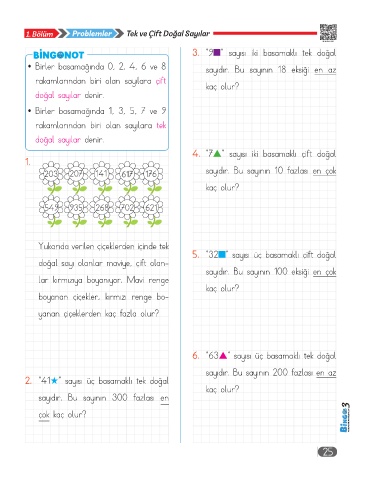 1. Bölüm Problemler Tek ve Çift Doğal Sayılar
BİNGO NOT
• Birler basamağında 0, 2, 4, 6 ve 8
rakamlarından biri olan sayılara çift
doğal sayılar denir.
• Birler basamağında 1, 3, 5, 7 ve 9
rakamlarından biri olan sayılara tek
doğal sayılar denir.
1.
203 207 141 617 176
549 935 268 702 621
Yukarıda verilen çiçeklerden içinde tek
doğal sayı olanlar maviye, çift olan-
lar kırmızıya boyanıyor. Mavi renge
boyanan çiçekler, kırmızı renge bo-
yanan çiçeklerden kaç fazla olur?
2. "41★" sayısı üç basamaklı tek doğal
sayıdır. Bu sayının 300 fazlası en
çok kaç olur?
3. "9■" sayısı iki basamaklı tek doğal
sayıdır. Bu sayının 18 eksiği en az
kaç olur?
4. "7▲" sayısı iki basamaklı çift doğal
sayıdır. Bu sayının 10 fazlası en çok
kaç olur?
5. "32■" sayısı üç basamaklı çift doğal
sayıdır. Bu sayının 100 eksiği en çok
kaç olur?
6. "63▲" sayısı üç basamaklı tek doğal
sayıdır. Bu sayının 200 fazlası en az
kaç olur?
BİNGO 3
25